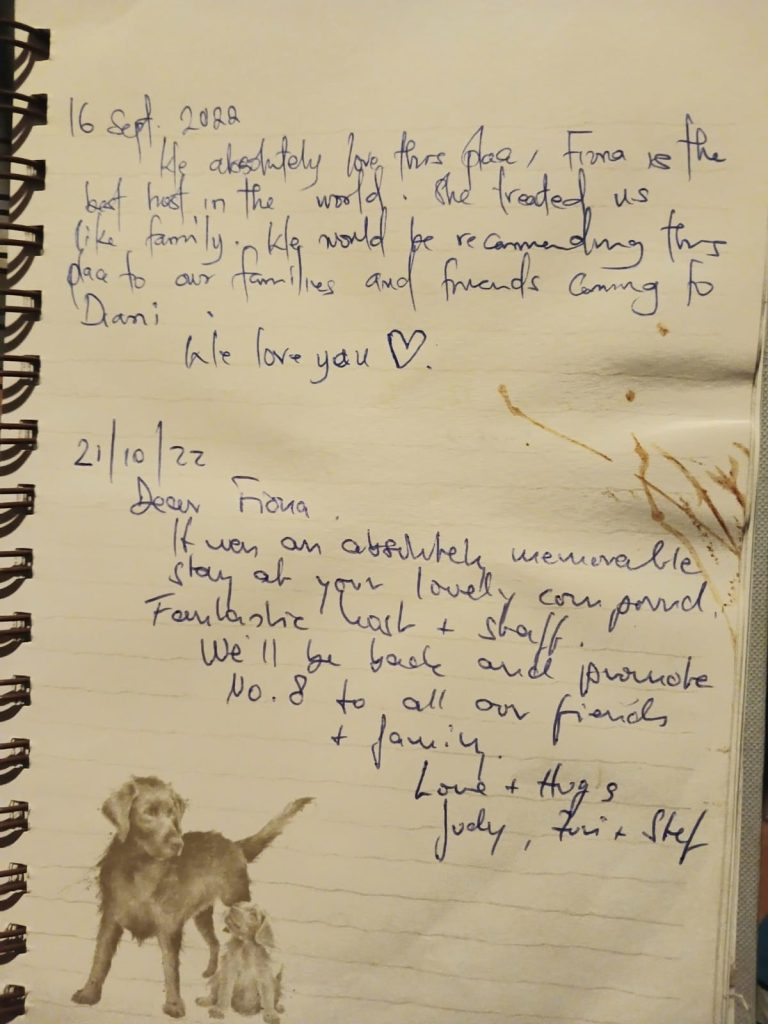 16 Sept. 2022
We absolutely love this place, Fiona is the
best host in the world. She treated us
like family. We would be recommending this
place to our families and friends coming to
Diani.
We love you ♡.
21/10/22
Dear Fiona.
It was an absolutely memorable
stay at your lovely compound.
Fantastic host + staff.
We'll be back and promote
No. 8 to all our friends
+ family.
Love + Hugs
Judy, + Stef